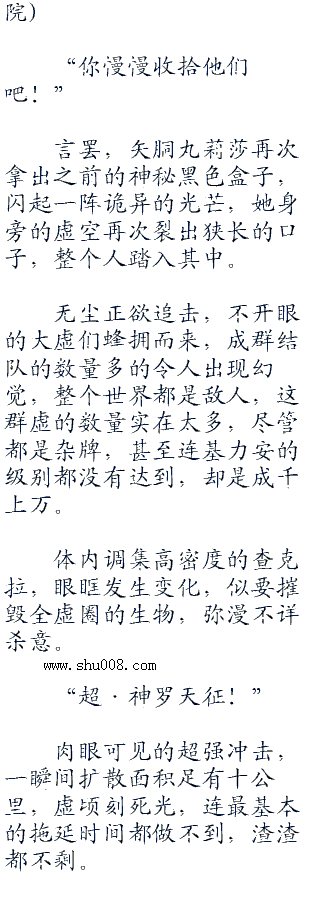 院)
“你慢慢收拾他们
吧！”
言罢，矢胴丸莉莎再次
拿出之前的神秘黑色盒子，
闪起一阵诡异的光芒，她身
旁的虚空再次裂出狭长的口
子，整个人踏入其中。
无尘正欲追击，不开眼
的大虚们蜂拥而来，成群结
队的数量多的令人出现幻
觉，整个世界都是敌人，这
群虚的数量实在太多，尽管
都是杂牌，甚至连基力安的
级别都没有达到，却是成千
上万。
体内调集高密度的查克
拉，眼眶发生变化，似要摧
毁全虚圈的生物，弥漫不详
杀意。
www.shu008.com
“超·神罗天征！”
肉眼可见的超强冲击，
一瞬间扩散面积足有十公
里，虚顷刻死光，连最基本
的拖延时间都做不到，渣渣
都不剩。